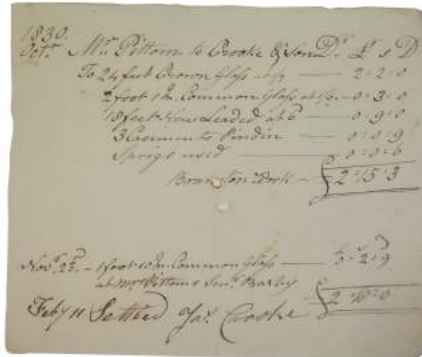 1830.
Octr. Mr. Pittom to Crooke & Son Dr. £ s D
To 24 feet Crown Glass 1/9 — 2:2:0
2 foot 1 In Common Glass at — 0:3:0
18 feet New Leaded at 6 — 0:9:0
3 Casements — 0:0:9
Sprigs used — 0:0:6
Work — 2:15:3
Novr. 23. – 1 foot 10 In Common Glass — 0:2:9
at Mr. Pittoms Senr.
Feby 11 Settled Jas. Crooke